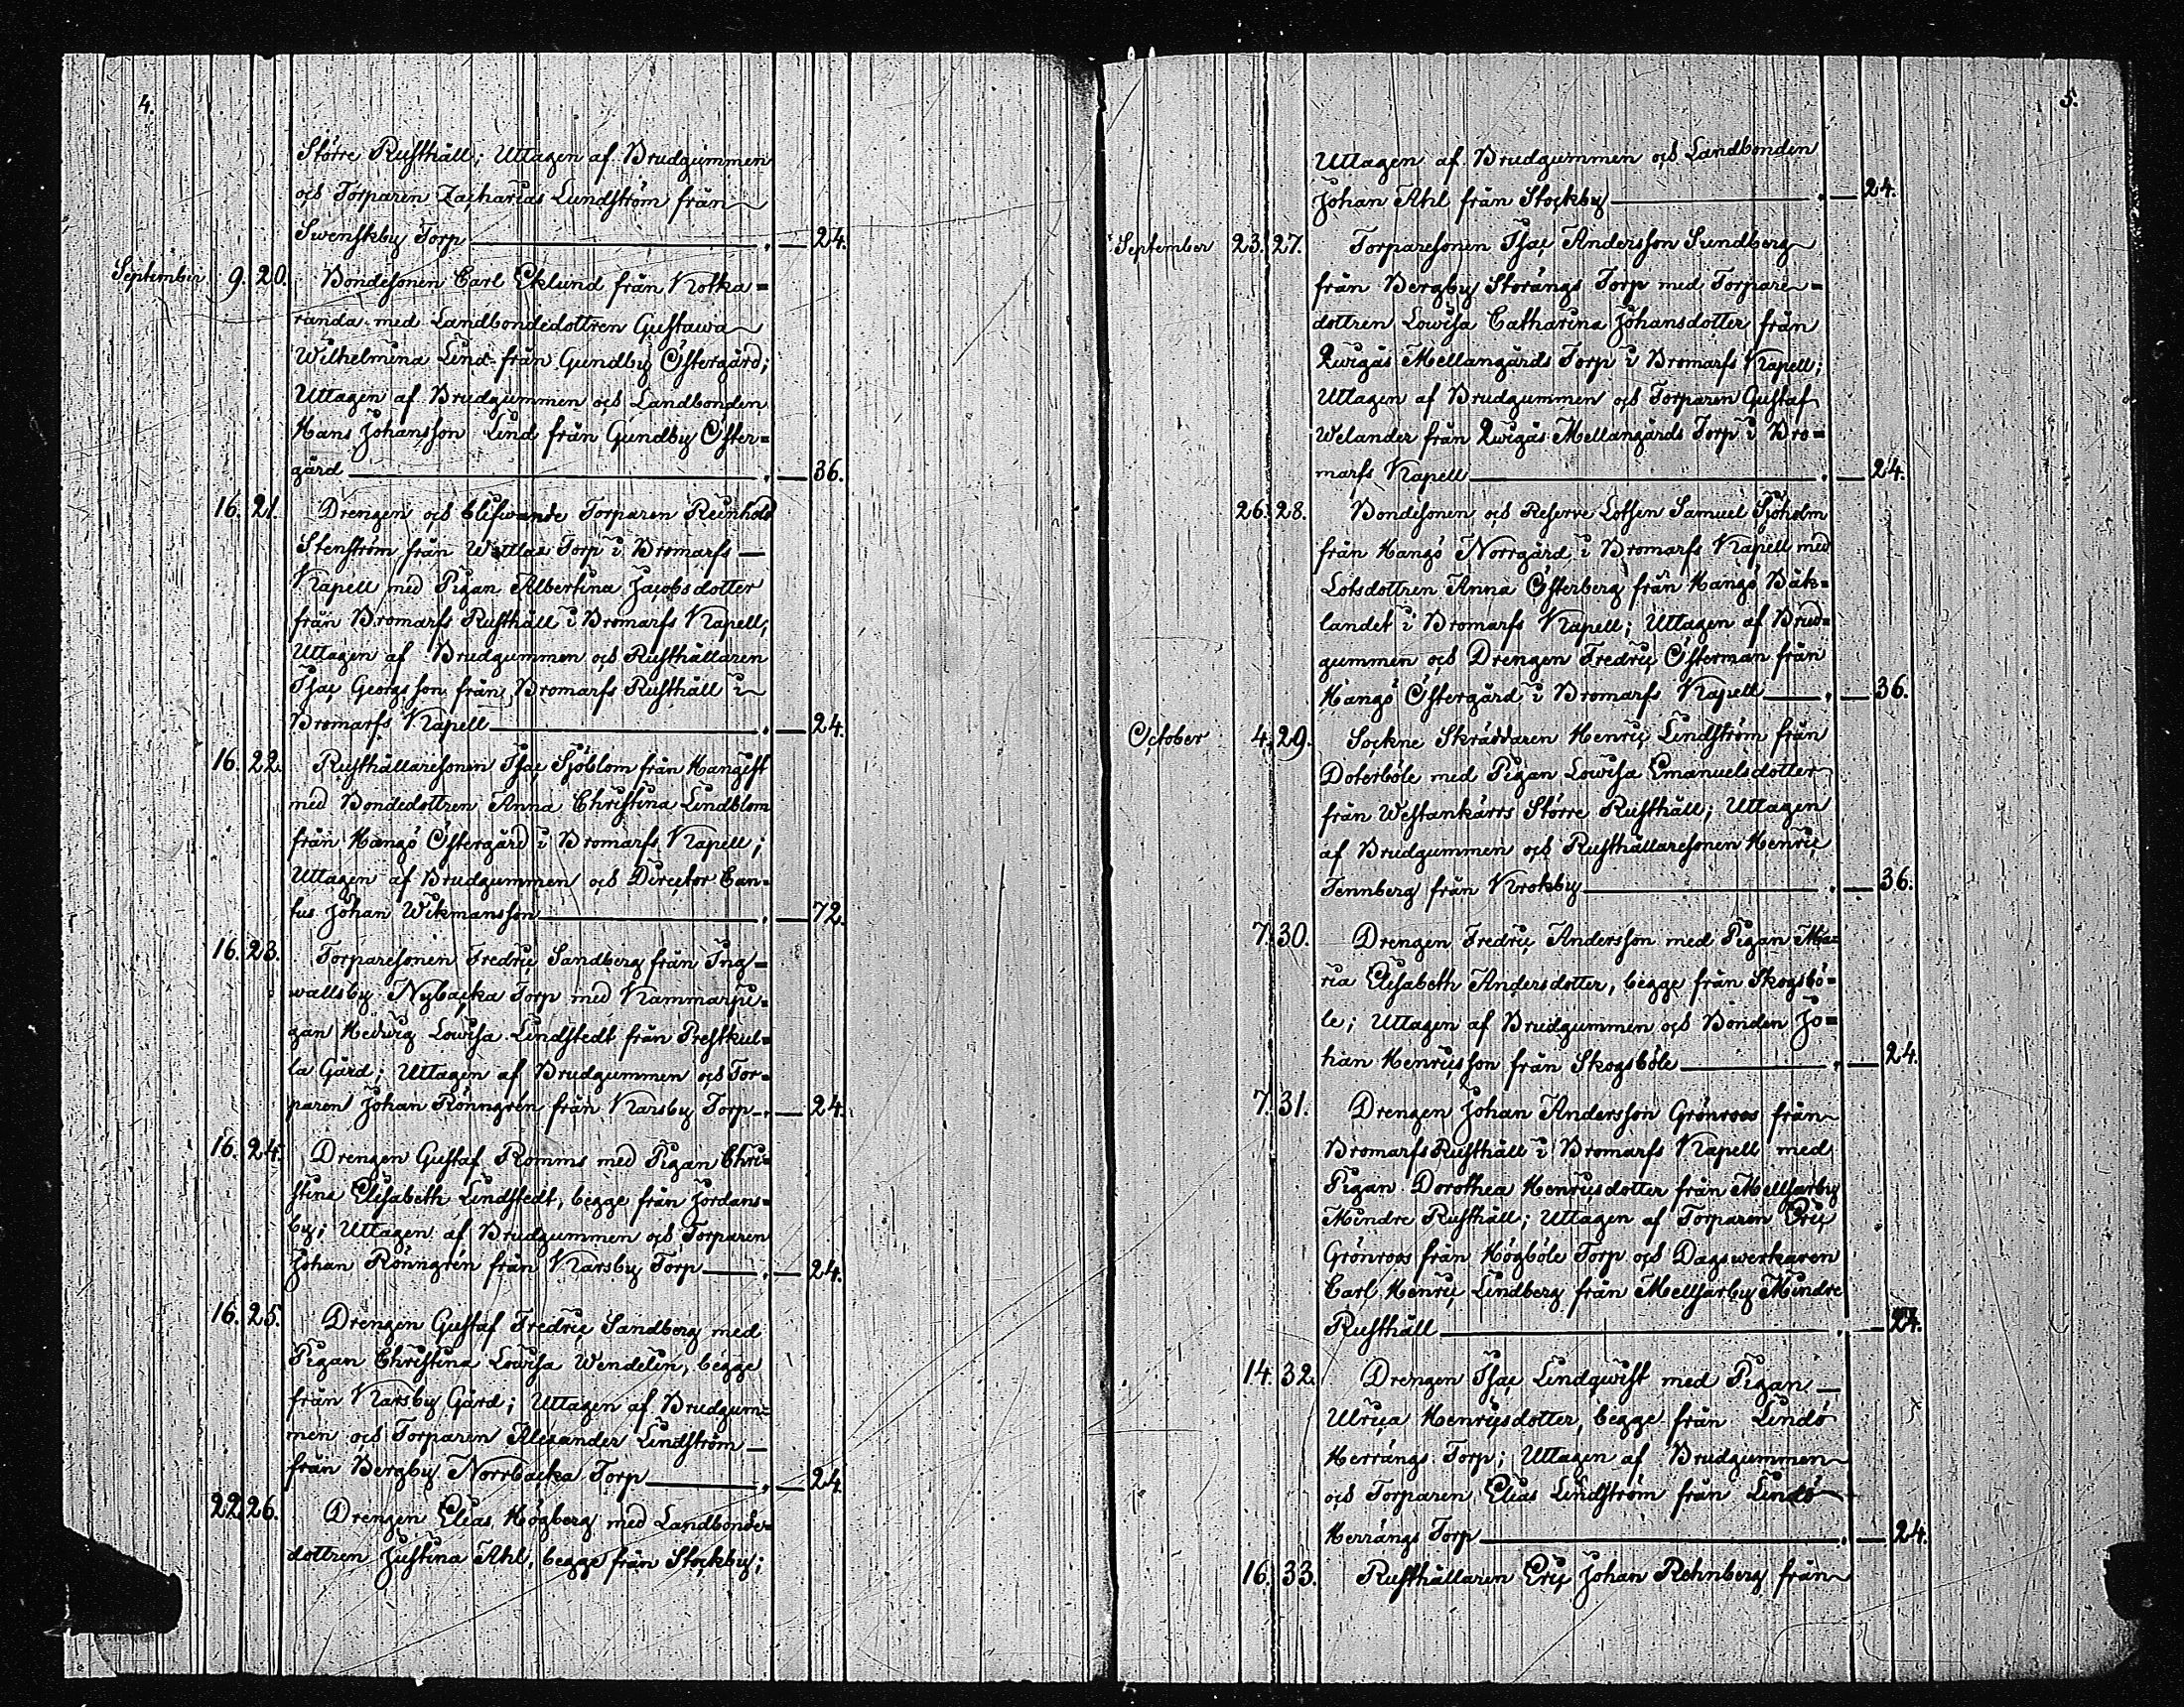 4.
Större Rusthåll; Uttagen af Brudgummen
och Torparen Zacharias Lundström från
Swenskby Torp — 24.
September 9. 20. Bondesonen Carl Eklund från Kotka=
randa med Landbondedottren Gustawa
Wilhelmina Lind från Gundby Östergård;
Uttagen af Brudgummen och Landbonden
Hans Johansson Lind från Gundby Öster=
gård — 36.
16. 21. Drengen och blifwande Torparen Reinhold
Stenström från Wättlax Torp i Bromarfs
Kapell med Pigan Albertina Jacobsdotter
från Bromarfs Rusthåll i Bromarfs Kapell;
Uttagen af Brudgummen och Rusthållaren
Isac Georgsson från Bromarfs Rusthåll i
Bromarfs Kapell — 24.
16. 22. Rusthållaresonen Isac Sjöblom från Hangist
med Bondedottren Anna Christina Lindblom
från Hangö Östergård i Bromarfs Kapell;
Uttagen af Brudgummen och Director Can=
tus Johan Wikmansson — 72.
16. 23. Torparesonen Fredric Sandberg från Ing=
wallsby Nybacka Torp med Kammarpi=
gan Hedwig Lowisa Lindstedt från Prestkul=
la Gård; Uttagen af Brudgummen och Tor=
paren Johan Rönngrén från Karsby Torp — 24.
16. 24. Drengen Gustaf Romms med Pigan Chri=
stina Elisabeth Lindstedt, begge från Jordans=
by; Uttagen af Brudgummen och Torparen
Johan Rönngrén från Karsby Torp — 24.
16. 25. Drengen Gustaf Fredric Sandberg med
Pigan Christina Lowisa Wendelin, begge
från Karsby Gård; Uttagen af Brudgum=
men och Torparen Alexander Lindström
från Bergby Norrbacka Torp — 24.
22. 26. Drengen Elias Högberg med Landbonde=
dottren Justina Ahl, begge från Stockby;
5.
Uttagen af Brudgummen och Landbonden
Johan Ahl från Stockby — 24.
September 23. 27. Torparesonen Isac Andersson Sundberg
från Bergby Storängs Torp med Torpare=
dottren Lowisa Catharina Johansdotter från
Qwigäs Mellangårds Torp i Bromarfs Kapell;
Uttagen af Brudgummen och Torparen Gustaf
Welander från Qwigäs Mellangårds Torp i Bro=
marfs Kapell — 24.
26. 28. Bondesonen och Reserve Lotsen Samuel Sjöholm
från Hangö Norrgård i Bromarfs Kapell med
Lotsdottren Anna Österberg från Hangö Bäk=
landet i Bromarfs Kapell; Uttagen af Brud=
gummen och Drengen Fredric Österman från
Hangö Östergård i Bromarfs Kapell — 36.
October 4. 29. Sockne Skräddaren Henric Lindström från
Doterböle med Pigan Lowisa Emanuelsdotter
från Westankärrs Större Rusthåll; Uttagen
af Brudgummen och Rusthållaresonen Henric
Tennberg från Krokby — 36.
7. 30. Drengen Fredric Andersson med Pigan Ma=
ria Elisabeth Andersdotter, begge från Skogsbö=
le; Uttagen af Brudgummen och Bonden Jo=
han Henricsson från Skogsböle — 24.
7. 31. Drengen Johan Andersson Grönroos från
Bromarfs Rusthåll i Bromarfs Kapell med
Pigan Dorothea Henricsdotter från Mellsarby
Mindre Rusthåll; Uttagen af Torparen Eric
Grönroos från Högböle Torp och Dagswerkaren
Carl Henric Lindberg från Mellsarby Mindre
Rusthåll — 24.
14. 32. Drengen Isac Lindqwist med Pigan
Ulrica Henricsdotter, begge från Lindö
Herrängs Torp; Uttagen af Brudgummen
och Torparen Elias Lindström från Lindö
Herrängs Torp — 24.
16. 33. Rusthållaren Eric Johan Rehnberg från